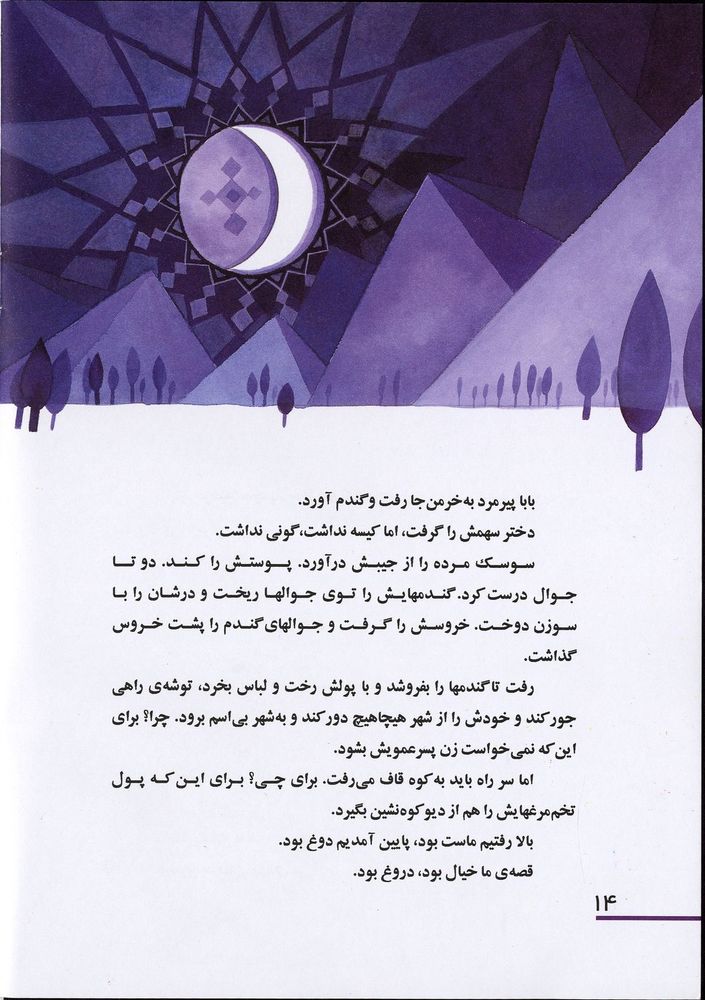 بابا پیرمرد به‌خرمن‌جا رفت و گندم آورد.
دختر سهمش را گرفت، اما کیسه نداشت،گونی نداشت.
سوسک مرده را از جیبش درآورد. پوستش را کند. دو تا
جوال درست کرد. گندمهایش را توی جوالها ریخت و درشان را با
سوزن دوخت. خروسش را گرفت و جوالهای گندم را پشت خروس
گذاشت.
رفت تا گندمها را بفروشد و با پولش رخت و لباس بخرد، توشه‌ی راهی
جور کند و خودش را از شهر هیچاهیچ دور کند و به‌شهر بی‌اسم برود. چرا؟ برای
این‌که نمی‌خواست زن پسرعمویش بشود.
اما سر راه باید به‌کوه قاف می‌رفت. برای چی؟ برای این‌که پول
تخم‌مرغهایش را هم از دیو کوه‌نشین بگیرد.
بالا رفتیم ماست بود، پایین آمدیم دوغ بود.
قصه‌ی ما خیال بود، دروغ بود.
۱۴